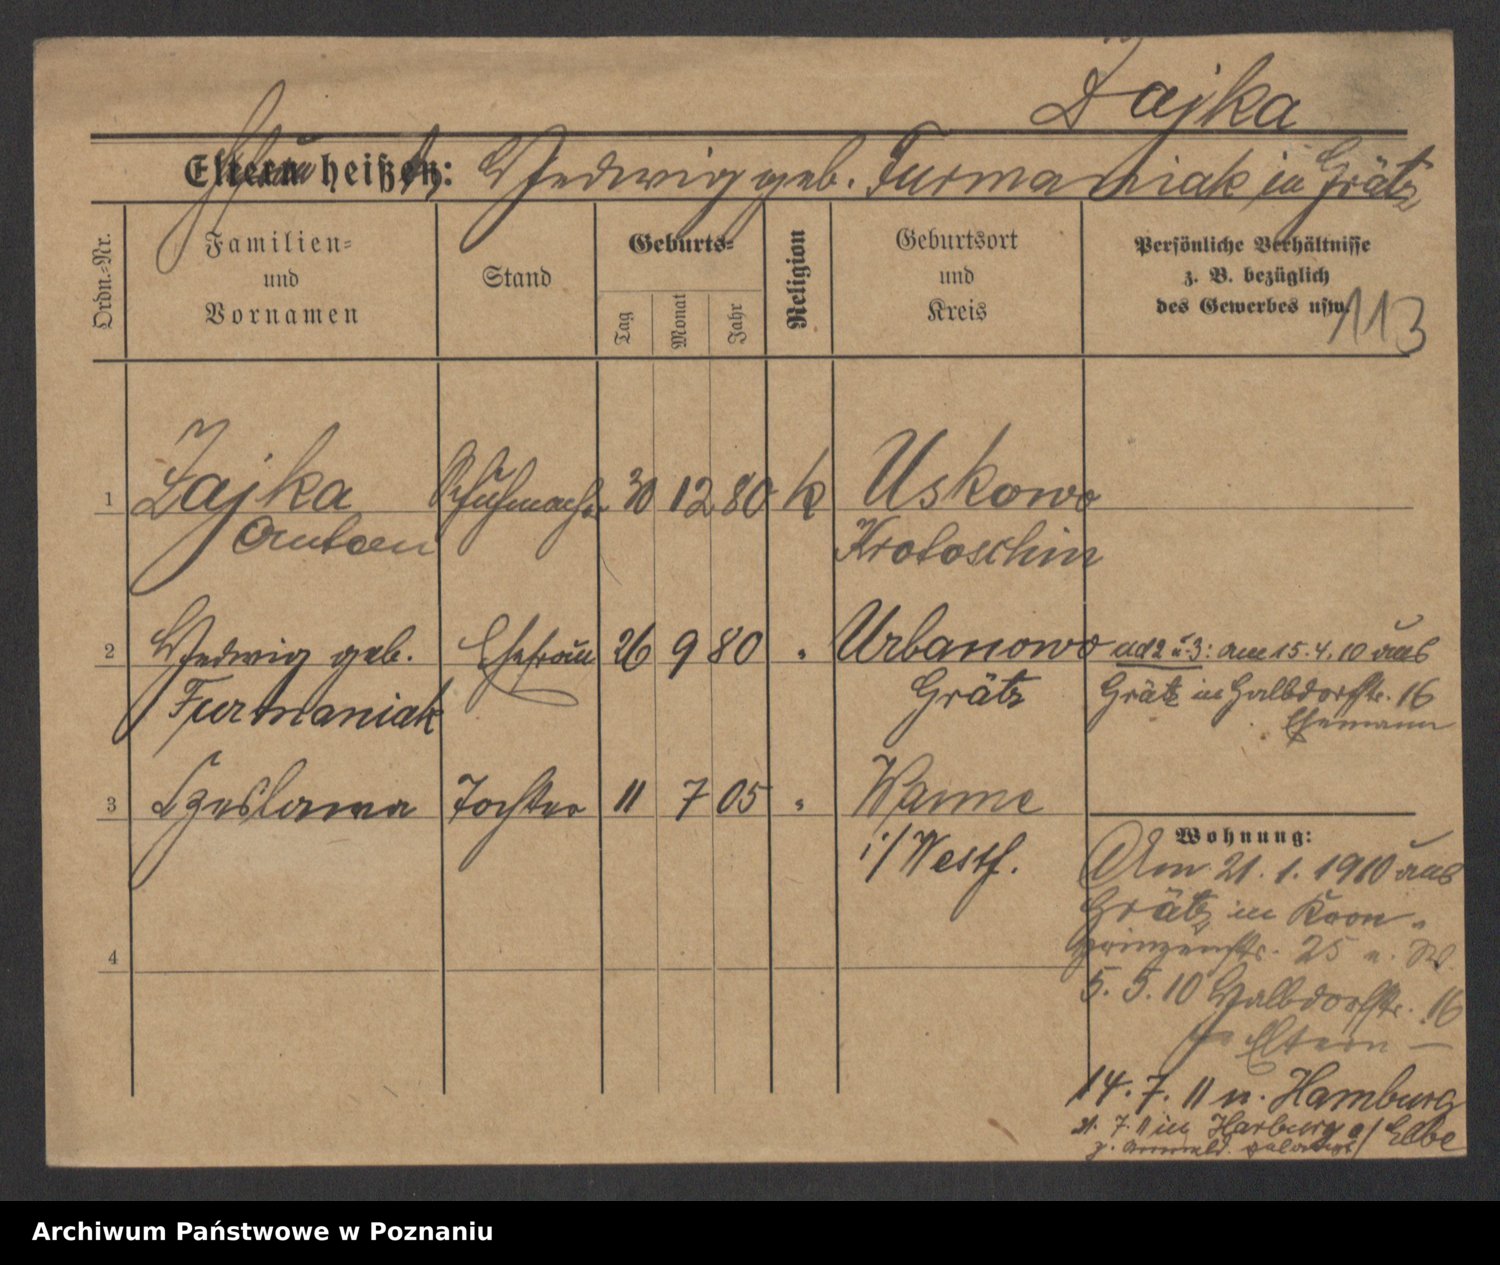 Zajka
Eltern heißen: Hedwig geb. Furmaniak in Grätz
Ordn.=Nr.
Familien=
und
Vornamen
Stand
Geburts=
Tag
Monat
Jahr
Religion
Geburtsort
und
Kreis
Persönliche Verhältnisse
z. B. bezüglich
des Gewerbes usw.
113
1 Zajka Schuhmacher 30 12 80 k Uskowo
Anton Krotoschin
2 Hedwig geb. Ehefrau 26 9 80 " Urbanowo ad 2 u. 3: am 15.4.10 aus
Furmaniak Grätz Grätz in Halbdorfstr. 16
Ehemann
3 Czeslawa Tochter 11 7 05 " Wanne
i/Westf.
4
Wohnung:
Am 21.1.1910 aus
Grätz in Kron-
prinzenstr. 25
5.5.10 Halbdorfstr. 16
Eltern —
14.7.11 n. Hamburg
21.7.11 in Harburg a/Elbe